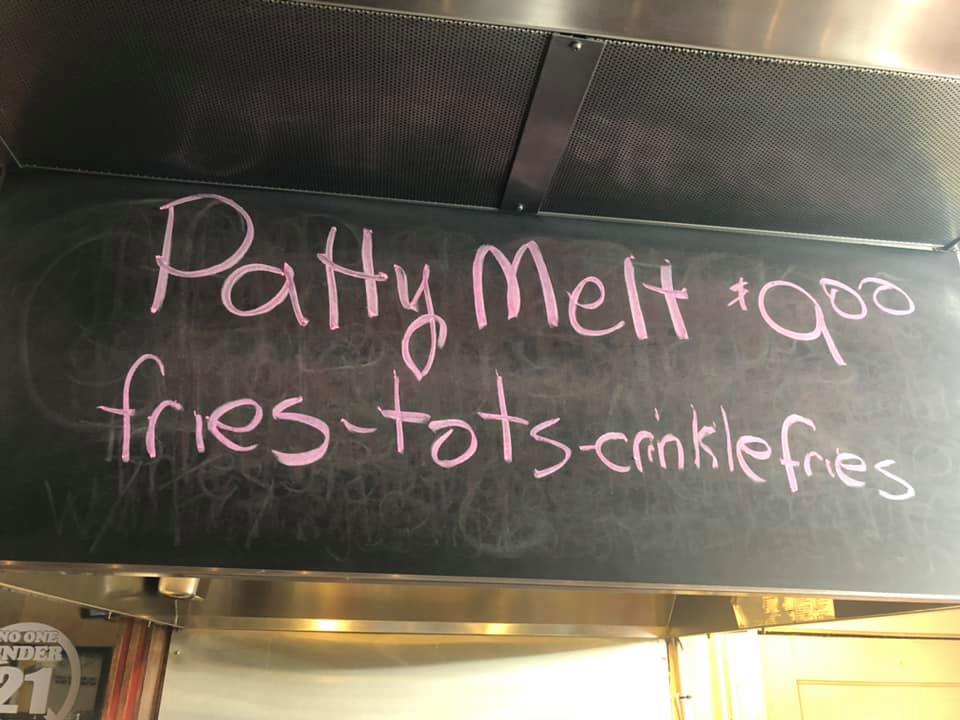 Patty Melt $900
fries-tots-crinkle fries
NO ONE
UNDER
21